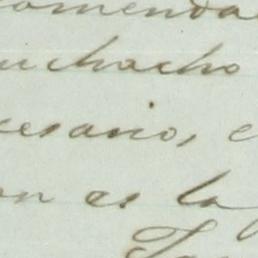 omenda
uchacho
cesario, e
on es la